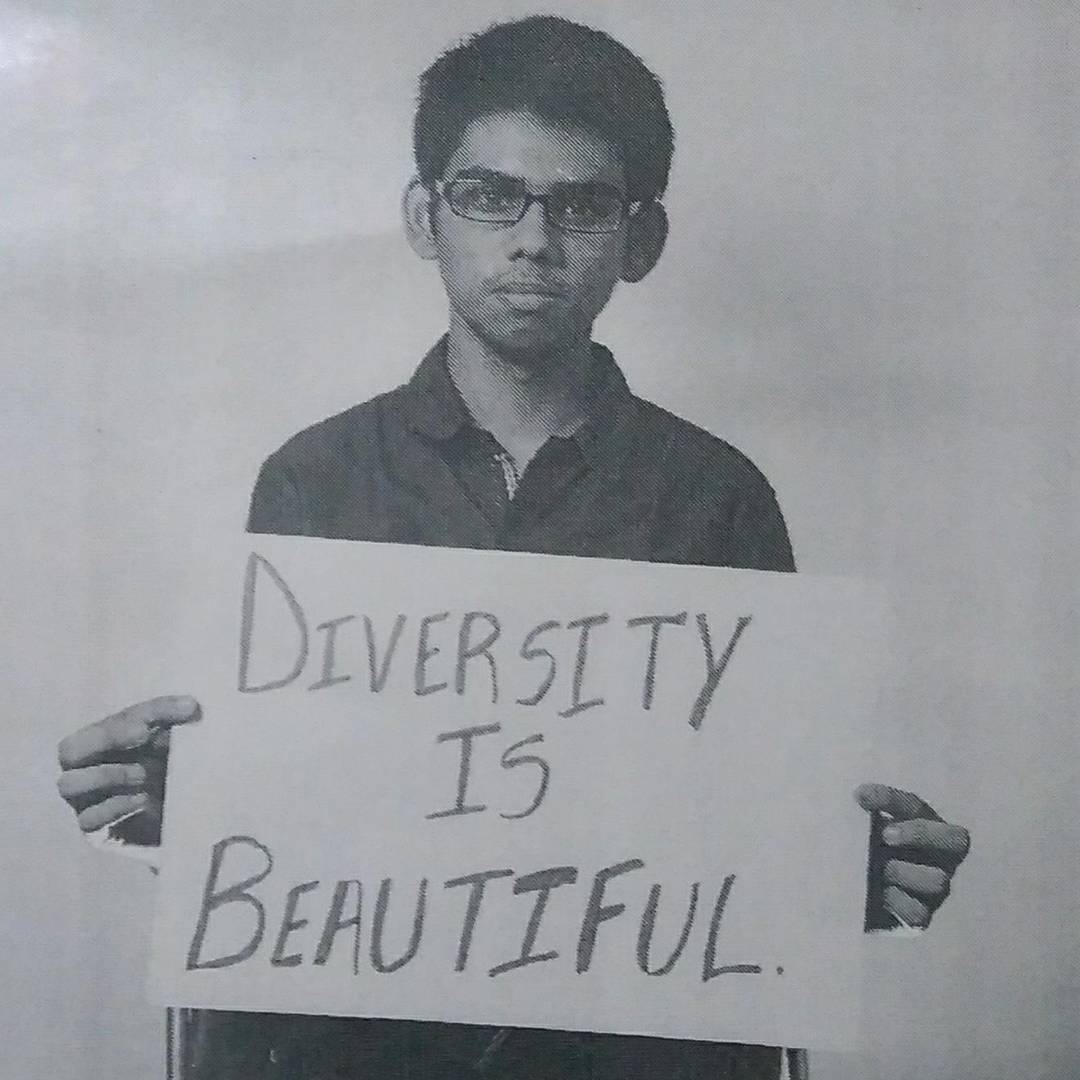 DIVERSITY
IS
BEAUTIFUL.